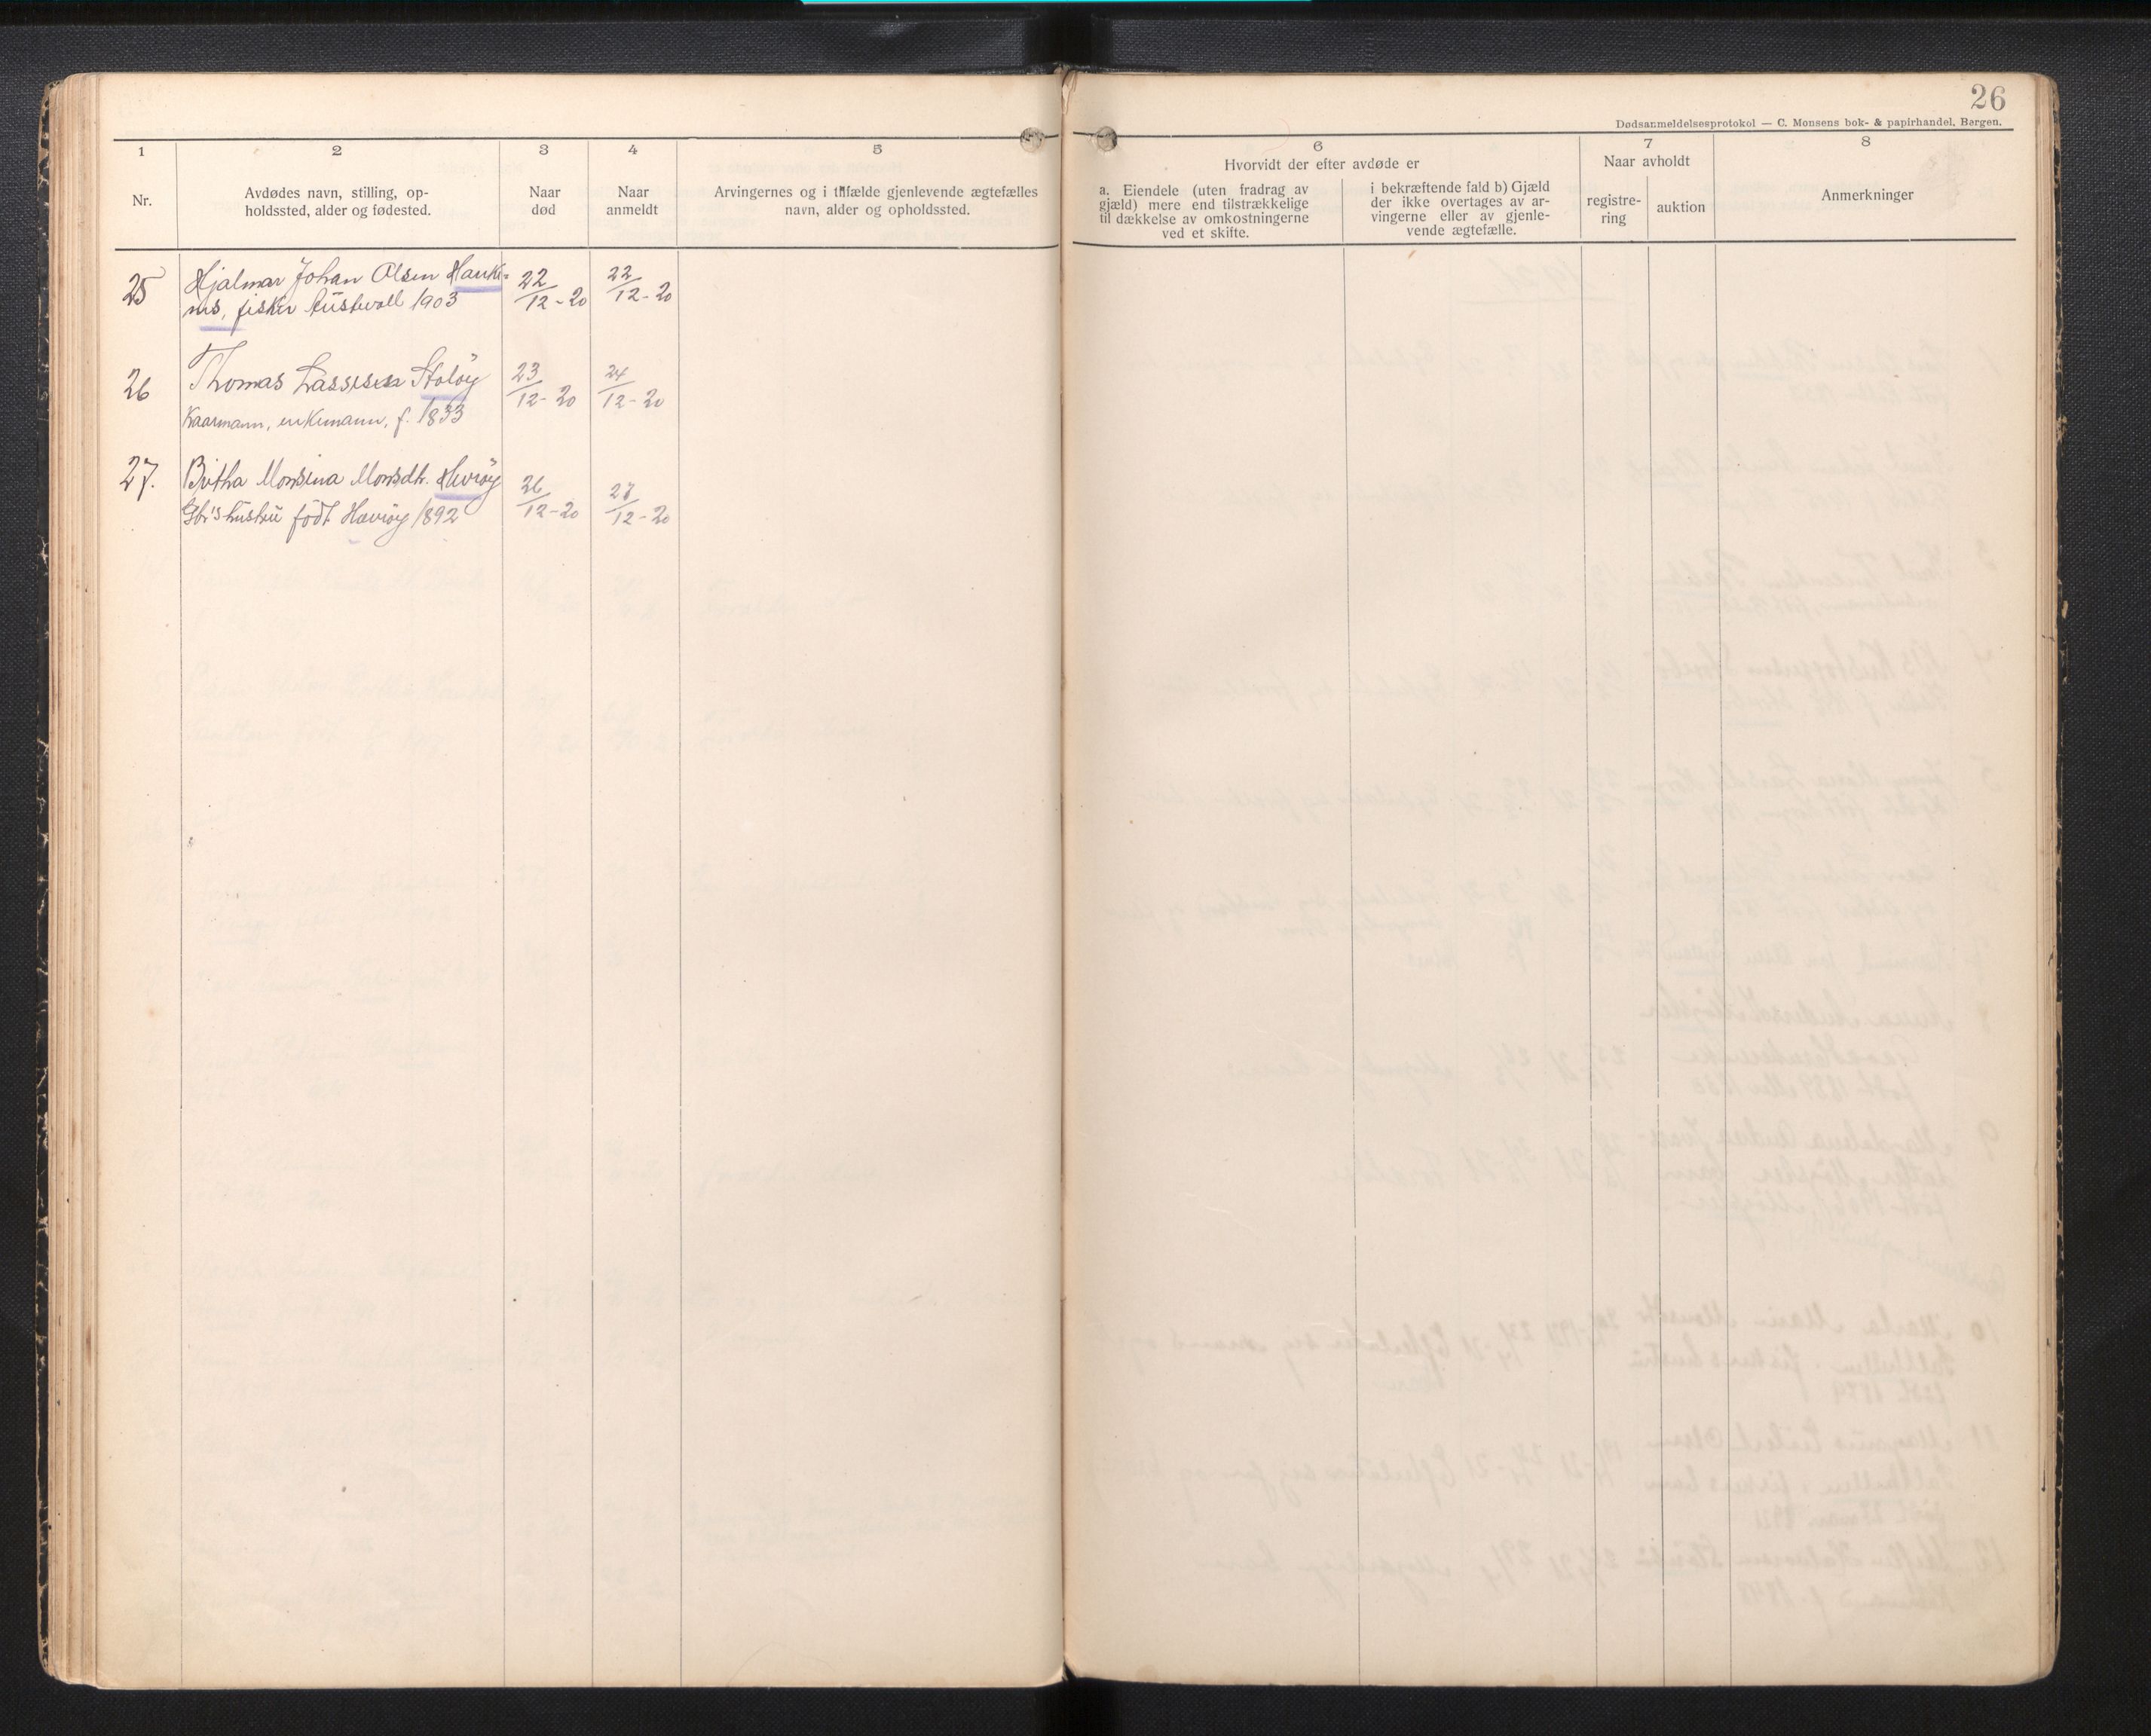 26
Dødsanmeldelsesprotokol — C. Monsens bok- & papirhandel, Bergen.
1
2
3
4
5
6
7
8
Nr.
Avdødes navn, stilling, op-
holdssted, alder og fødested.
Naar
død
Naar
anmeldt
Arvingernes og i tilfælde gjenlevende ægtefælles
navn, alder og opholdssted.
Hvorvidt der efter avdøde er
a. Eiendele (uten fradrag av
gjæld) mere end tilstrækkelige
til dækkelse av omkostningerne
ved et skifte.
i bekræftende fald b) Gjæld
der ikke overtages av ar-
vingerne eller av gjenle-
vende ægtefælle.
Naar avholdt
registre-
ring
auktion
Anmerkninger
25 Hjalmar Johan Olsen Hauk- 22/12-20 22/12-20
nes, fisker Austevoll 1903
26 Thomas Lassesen Stoløy 23/12-20 24/12-20
Kaarmann, enkemann, f. 1833
27. Britha Monsina Monsdtr. Hevrøy 26/12-20 27/12-20
Gbr's hustru født Hævrøy 1892